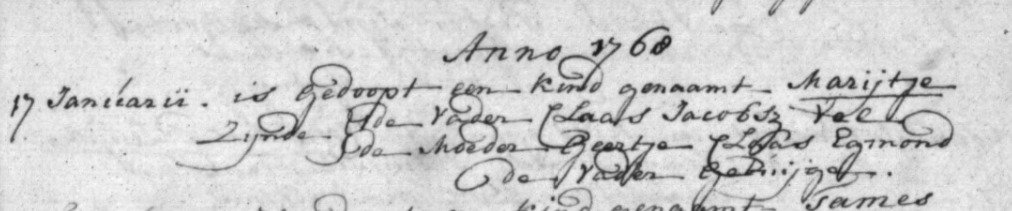 Anno 1768
17 Januarii. is Gedoopt een kind genaamt Marijtje
Zijnde de Vader Claas Jacobsz Vel
de Moeder Geertje Claas Egmond
de Vader getuijge.
kind genaamt James